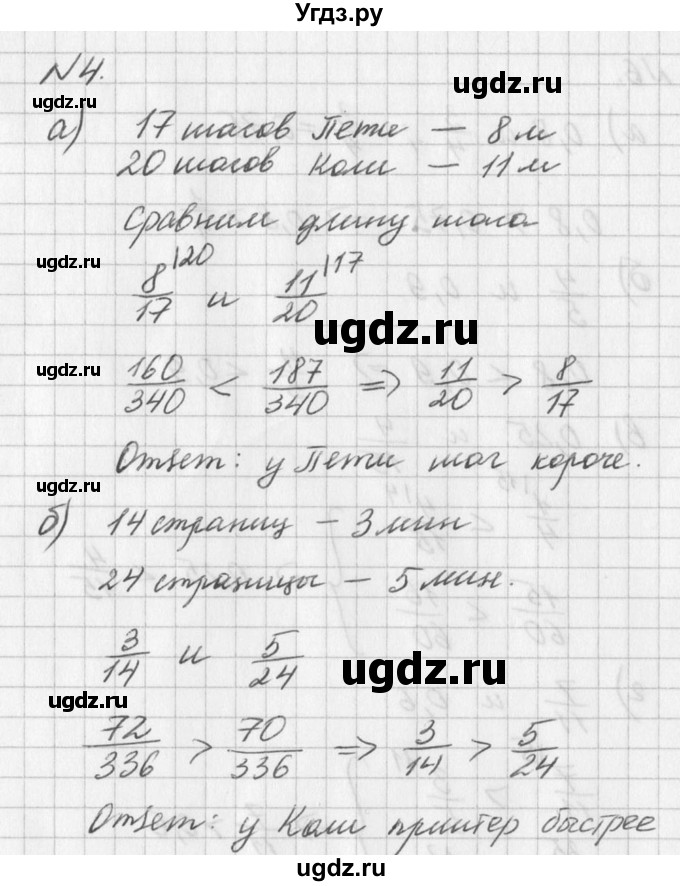 Угдз.ру
N4.
ugdz.ru
а) 17 шагов Пети — 8 м
20 шагов Коли — 11 м
Сравним длину шага
ugdz.ru
8/17 |20 и 11/20 |17
ugdz.ru
ugdz.ru
160/340 < 187/340 => 11/20 > 8/17
Ответ: у Пети шаг короче.
ugdz.ru
б) 14 страниц — 3 мин
24 страницы — 5 мин.
3/14 и 5/24
ugdz.ru
ugdz.ru
72/336 > 70/336 => 3/14 > 5/24
Ответ: у Коли принтер быстрее
ugdz.ru